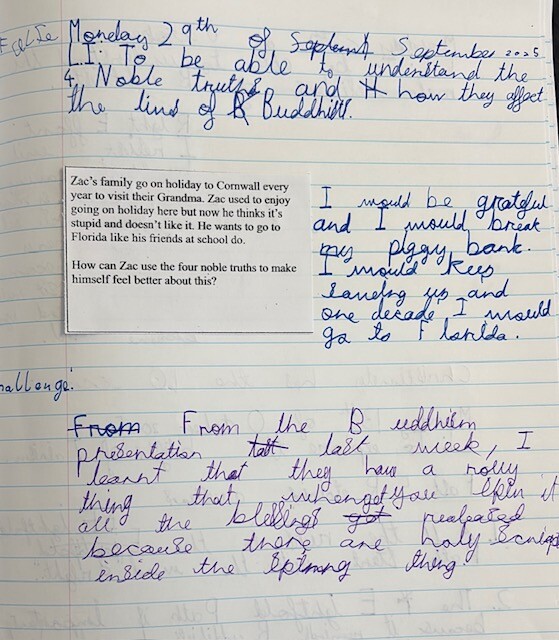 Monday 29th of Septemt September 2025
L.I: To be able to understand the
4 Noble truths and H how they affect
the lives of B Buddhist.
Zac's family go on holiday to Cornwall every
year to visit their Grandma. Zac used to enjoy
going on holiday here but now he thinks it's
stupid and doesn't like it. He wants to go to
Florida like his friends at school do.
How can Zac use the four noble truths to make
himself feel better about this?
I would be grateful
and I would break
my piggy bank.
I would keep
saveing up and
one decade I would
go to Florida.
hallenge:
From From the Buddhism
presentation last week, I
learnt that they have a rolly
thing that, you spin it
all the blessings got realeated
because there are holy scripts
inside the thing